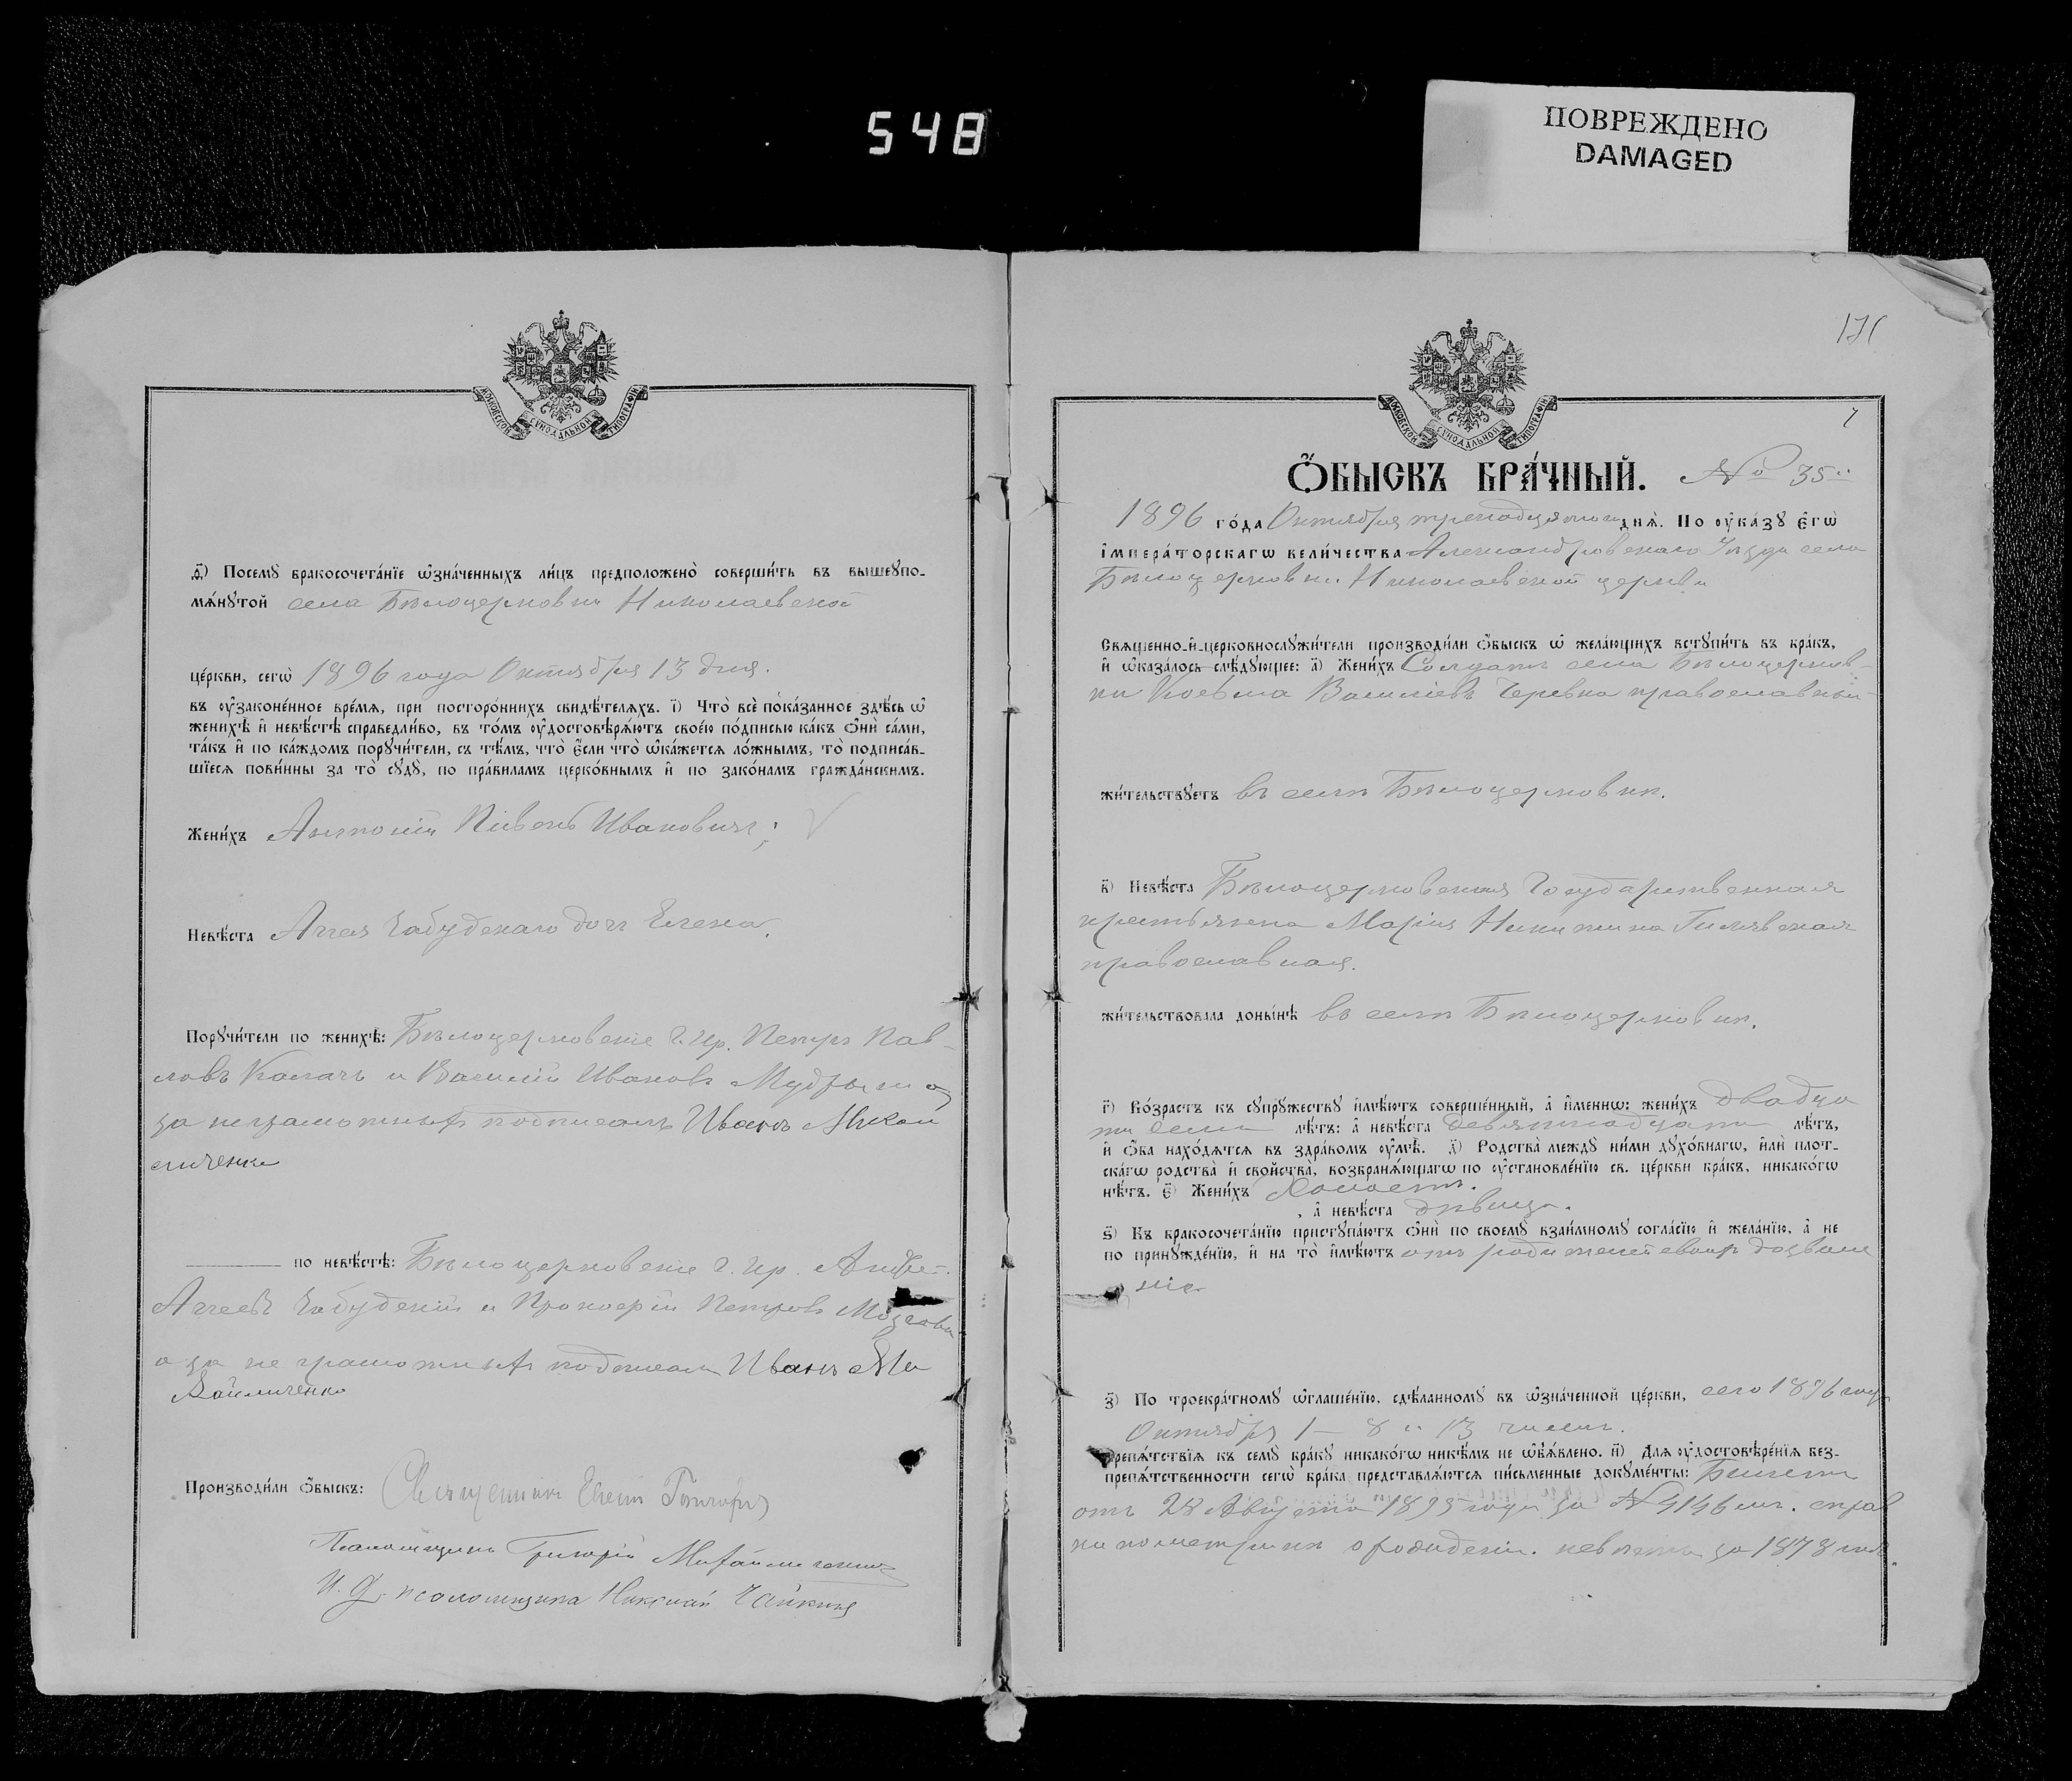 548
ПОВРЕЖДЕНО
DAMAGED
МОСКОВСКОЙ СѴНОДАЛЬНОЙ ТИПОГРАФІИ
ѳ҃) Посемꙋ бракосочета́нїе ѡ҆зна́ченныхъ ли́цъ предположено̀ соверши́ть въ вышеꙋпо-
мѧ́нꙋтой села Бѣлоцерковки Николаевской
це́ркви, сегѡ̀ 1896 года Октября 13 дня.
въ ᲂу҆зако́ненное вре́мѧ, при посторо́ннихъ свидѣ́телѧхъ. і҃) Что̀ всѐ пока́занное здѣ́сь ѡ҆
женихѣ̀ и҆ невѣ́стѣ справедли́во, въ то́мъ ᲂу҆достовѣрѧ́ютъ свое́ю по́дписью ка́къ ѻ҆нѝ са́ми,
та́къ и҆ по ка́ждомъ порꙋчи́тели, съ тѣ́мъ, что̀ є҆́сли что̀ ѡ҆ка́жетсѧ ло́жнымъ, то̀ подписа́в-
шїесѧ пови́нны за то̀ сꙋдꙋ̀, по пра́виламъ церко́внымъ и҆ по зако́намъ гражда́нскимъ.
Жени́хъ Антоній Пивень Ивановичъ;
Невѣ́ста Аггея Забудскаго дочь Елена.
Порꙋчи́тели по женихѣ̀: Бѣлоцерковскіе г. кр. Петръ Пав-
ловъ Калачъ и Василій Ивановъ Мудрый а
за неграмотныхъ подписалъ Иванъ Михай
личенко
по невѣ́стѣ: Бѣлоцерковскіе г. кр. Андре-
Аггеевъ Забудскій и Прокофій Петровъ
а за не грамотныхъ подписалъ Иванъ Ми
хайличенко
Производи́ли ѻ҆́быскъ: Священникъ
Псаломщикъ Григорій Михайличенко
И. д. псаломщика Николай Чайкинъ
171
МОСКОВСКОЙ СѴНОДАЛЬНОЙ ТИПОГРАФІИ
Ѻ҆́БЫСКЪ БРА́ЧНЫЙ. № 35
1896 го́да Октября тринадцатаго днѧ̀. По ᲂу҆ка́зꙋ є҆гѡ̀
і҆мпера́торскагѡ вели́чества Александровскаго Уѣзда села
Бѣлоцерковки Николаевской церкви
Свѧще́нно-и҆-церковнослꙋжи́тели производи́ли ѻ҆́быскъ ѡ҆ жела́ющихъ встꙋпи́ть въ бра́къ,
и҆ ѡ҆каза́лось слѣ́дꙋющее: а҃) Жени́хъ Солдатъ села Бѣлоцерков-
ки Косьма Василіевъ Черевко православный
жи́тельствꙋетъ въ селѣ Бѣлоцерковкѣ.
в҃) Невѣ́ста Бѣлоцерковская Государственная
крестьянка Марія Никитина Гилевская
православная.
жи́тельствовала доны́нѣ въ селѣ Бѣлоцерковкѣ.
г҃) Во́зрастъ къ сꙋпрꙋ́жествꙋ и҆мѣ́ютъ соверше́нный, а҆ и҆́менно: жени́хъ двадца
ти семи лѣ́тъ: а҆ невѣ́ста девятнадцати лѣ́тъ,
и҆ ѻ҆́ба нахо́дѧтсѧ въ здра́вомъ ᲂу҆мѣ̀. д҃) Родства̀ междꙋ ни́ми дꙋхо́внагѡ, и҆лѝ плот-
ска́гѡ родства̀ и҆ сво́йства̀, возбранѧ́ющагѡ по ᲂу҆становле́нїю св. це́ркви бра́къ, никако́гѡ
нѣ́тъ. є҃) Жени́хъ Холостъ.
, а҆ невѣ́ста дѣвица.
ѕ҃) Къ бракосочета́нїю пристꙋпа́ютъ ѻ҆нѝ по своемꙋ̀ взаи́мномꙋ согла́сїю и҆ жела́нїю, а҆ не
по принꙋжде́нїю, и҆ на то̀ и҆мѣ́ютъ отъ родителей своихъ дозволе
ніе
з҃) По троекра́тномꙋ ѡ҆глаше́нїю, сдѣ́ланномꙋ въ ѡ҆зна́ченной це́ркви, сего 1896 года
Октября 1 – 8 и 13 числъ.
препѧ́тствїѧ къ семꙋ̀ бра́кꙋ никако́гѡ никѣ́мъ не ѡ҆б̾ѧ́влено. и҃) Длѧ ᲂу҆достовѣре́нїѧ без-
препѧ́тственности сегѡ̀ бра́ка представлѧ́ютсѧ пи́сьменные докꙋме́нты: Билетъ
отъ 28 Августа 1895 года за № 4146 справ
ки по метрикѣ о рожденіи невѣсты за 1878 годъ.